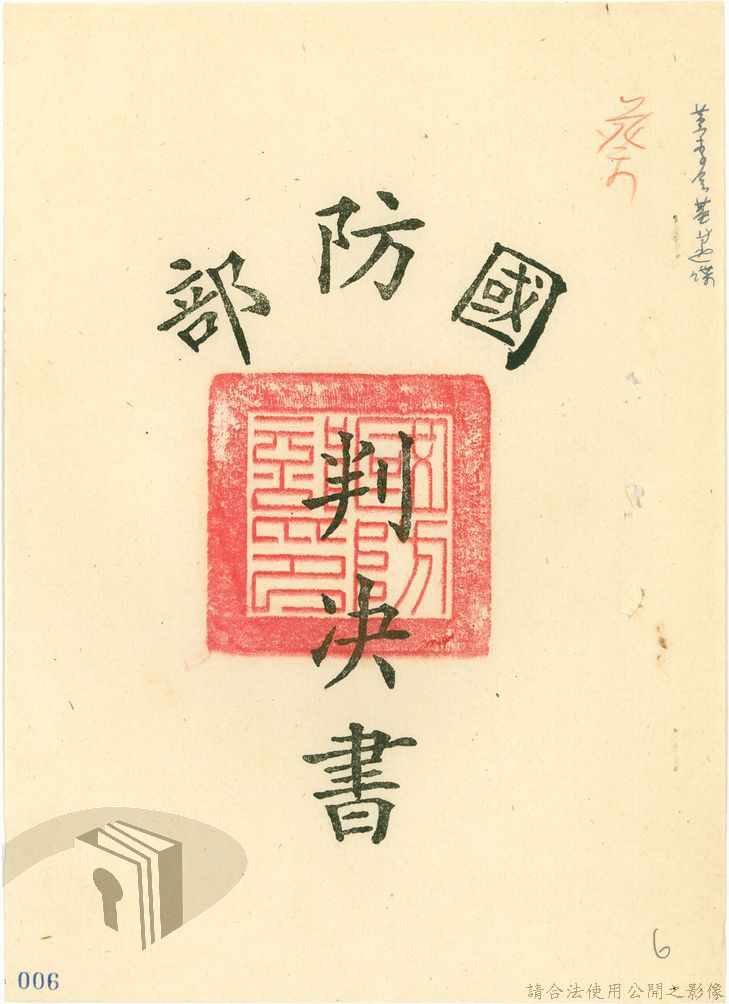 國防部
判決書
6
006
請合法使用公開之影像